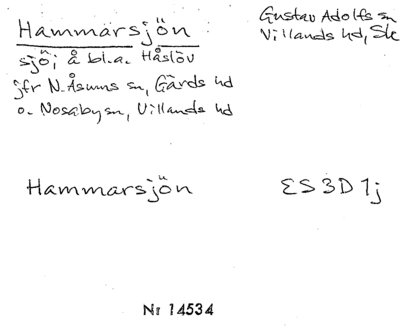 Hammarsjön
sjö; å bl.a. Håslöv
jfr N. Åsums sn, Gärds hd
o. Nosaby sn, Villands hd
Gustav Adolfs sn
Villands hd, Sk
Hammarsjön
ES 3D 1j
Nr 14534